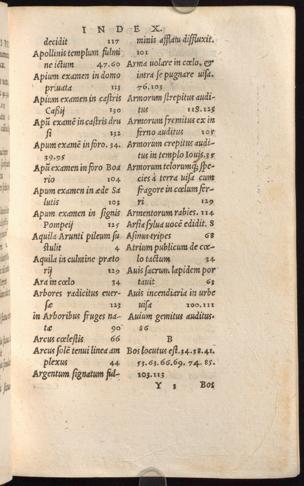 INDEX.
decidit 117
Apollinis templum fulmi
ne ictum 47.60
Apium examen in domo
priuata 113
Apium examen in castris
Cassij 130
Apū examē in castris dru
si 132
Apum examē in foro. 34.
39.95
Apū examen in foro Boa
rio 104
Apum examen in æde Sa
lutis 103
Apum examen in signis
Pompeij 125
Aquila Arunti pileum su
stulit 4
Aquila in culmine præto
rij 129
Ara in cœlo 34
Arbores radicitus euer-
sæ 123
in Arboribus fruges na-
tæ 90
Arcus cœlestis 66
Arcus solē tenui linea am
plexus 44
Argentum signatum ful-
minis afflatu diffluxit.
101
Arma uolare in cœlo, &
intra se pugnare uisa.
76.103
Armorum strepitus audi-
tus 118.125
Armorum fremitus ex in
ferno auditus 105
Armorum crepitus audi-
tus in templo Iouis.35
Armorum telorumq; spe-
cies à terra uisa cum
fragore in cœlum fer-
ri 129
Armentorum rabies. 114
Arsia sylua uocē edidit. 8
Asinus tripes 68
Atrium publicum de cœ-
lo tactum 34
Auis sacram lapidem por
tauit 63
Auis incendiaria in urbe
uisa 100.111
Auium gemitus auditus.
86
B
Bos locutus est.34.38.41.
53.63.66.69.74.85.
103.113
Y 3 Bos